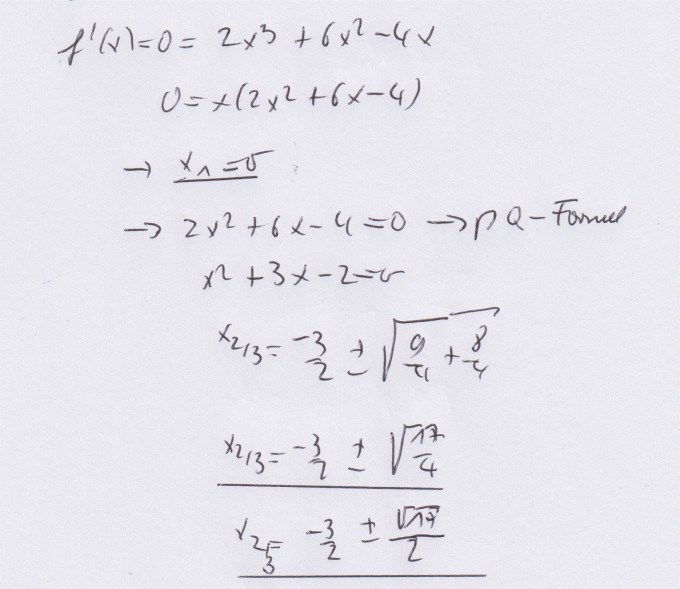 f'(x)=0= 2x³ + 6x² - 4x
0 = x(2x² + 6x - 4)
→ x₁ = 0
→ 2x² + 6x - 4 = 0 → pQ-Formel
x² + 3x - 2 = 0
x₂/₃ = -3/2 ± √(9/4 + 8/4)
x₂/₃ = -3/2 ± √(17/4)
x₂/₃ = -3/2 ± √17/2